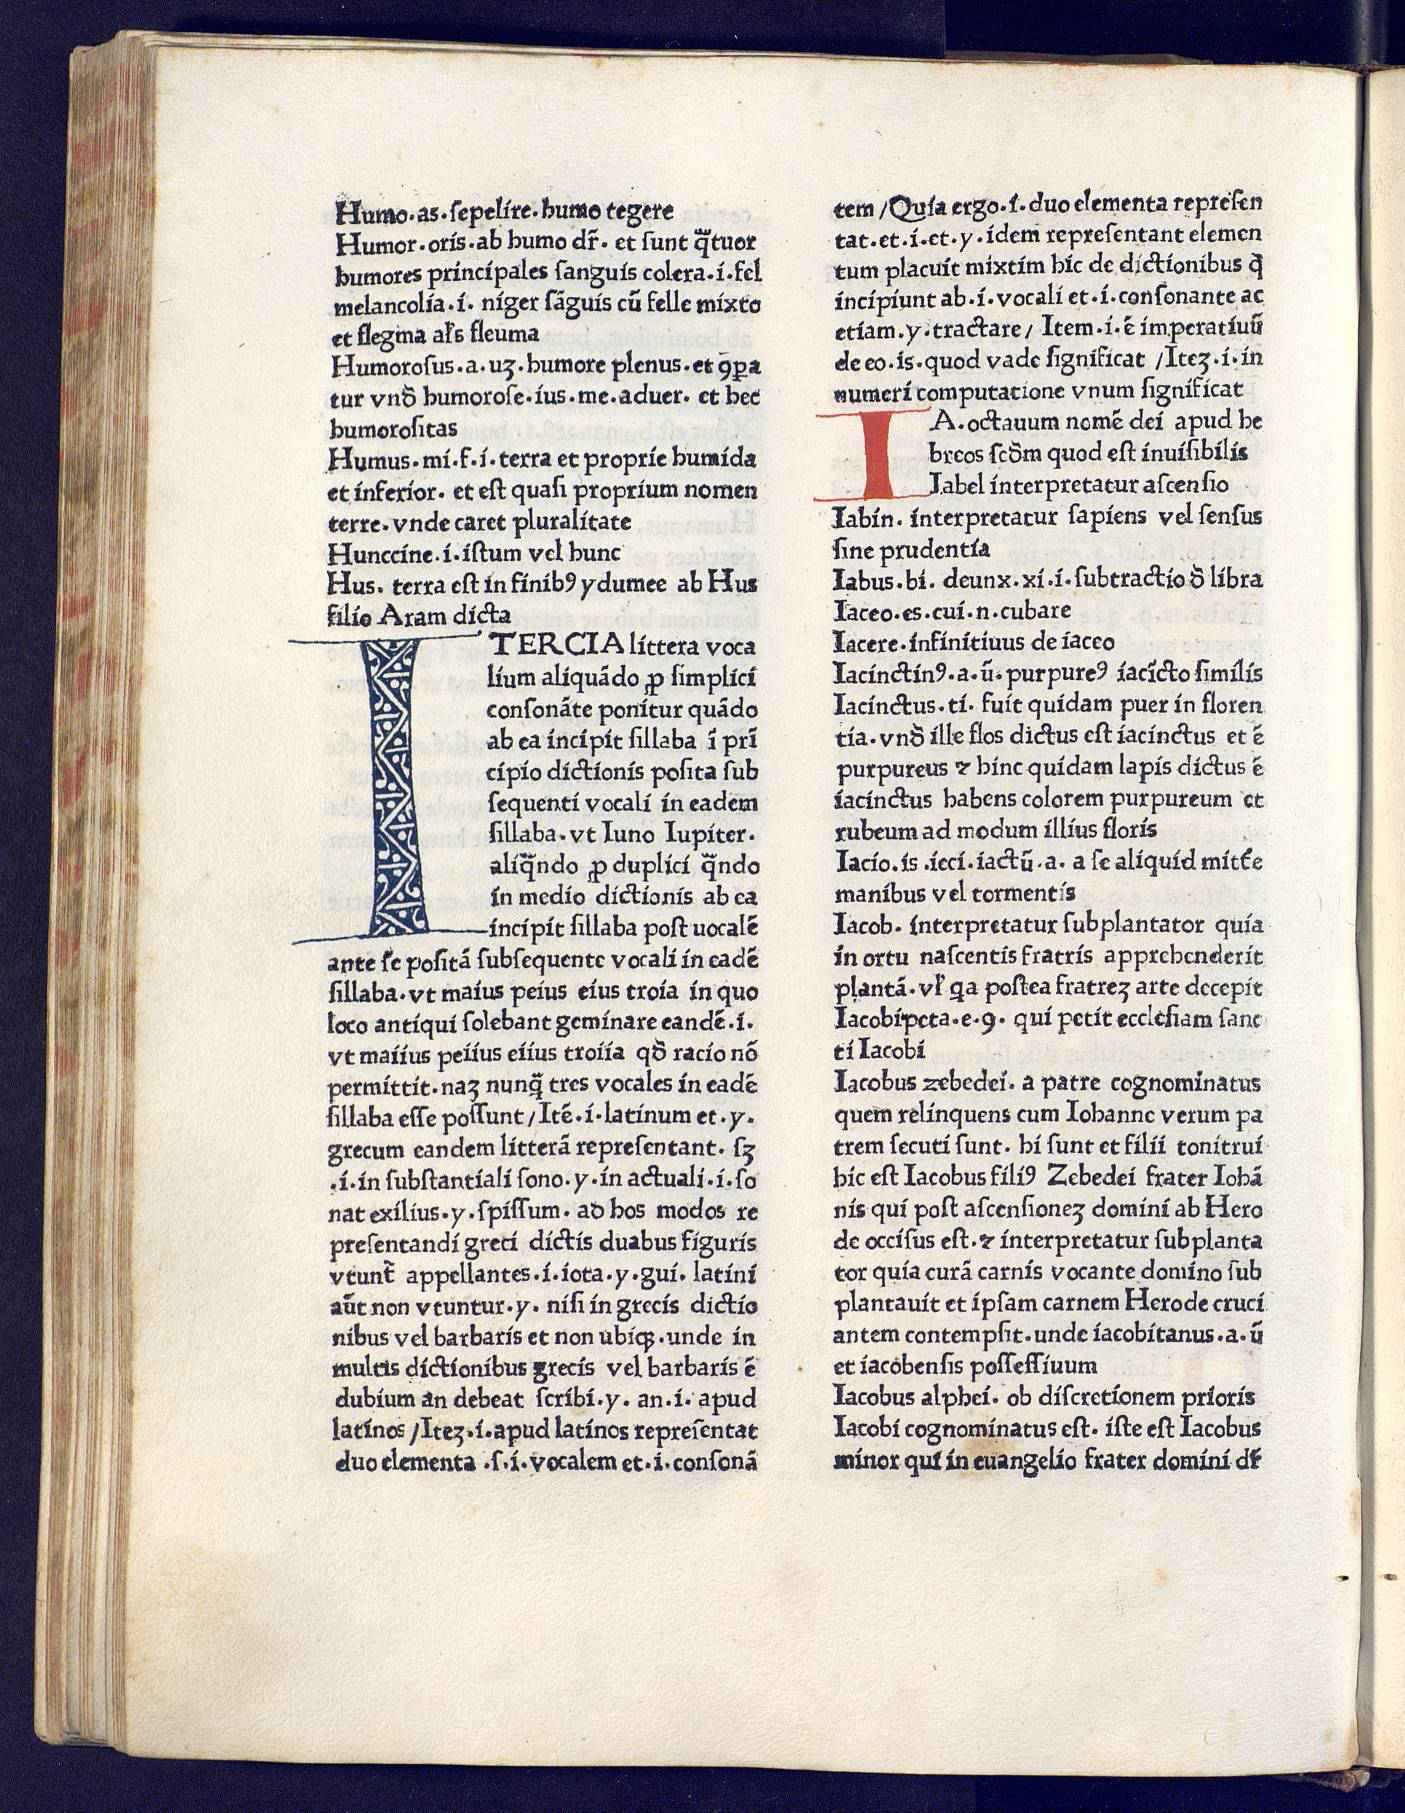 Humo·as·ſepelire·humo tegere
Humor·oris·ab humo dr̄· et ſunt q̄tuor
humores principales ſanguis colera·i·fel
melancolia·i· niger ſāguis cū felle mixto
et flegma al̄s fleuma
Humoroſus·a·uꝫ·humore plenus·et ꝯꝑa
tur vnð humoroſe·ius·me·aduer· et hec
humoroſitas
Humus·mi·f·i·terra et proprie humida
et inferior· et eſt quaſi proprium nomen
terre·vnde caret pluralitate
Hunccine·i·iſtum vel hunc
Hus· terra eſt in finibꝯ ydumee ab Hus
filio Aram dicta
I TERCIA littera voca
lium aliquādo ꝓ ſimplici
conſonāte ponitur quādo
ab ea incipit ſillaba ī pri
cipio dictionis poſita ſub
ſequenti vocali in eadem
ſillaba·vt Iuno Iupiter·
aliq̄ndo ꝓ duplici q̄ndo
in medio dictionis ab ea
incipit ſillaba poſt uocalē
ante ſe poſitā ſubſequente vocali in eadē
ſillaba·vt maius peius eius troia in quo
loco antiqui ſolebant geminare eandē·i·
vt maiius peiius eiius troiia qð racio nō
permittit·naꝫ nunq̄ tres vocales in eadē
ſillaba eſſe poſſunt/Itē·i·latinum et·y·
grecum eandem litterā repreſentant· ſꝫ
·i·in ſubſtantiali ſono·y·in actuali·i·ſo
nat exilius·y·ſpiſſum· ad hos modos re
preſentandi greci dictis duabus figuris
vtunt̄ appellantes·i·iota·y·gui· latini
aūt non vtuntur·y· niſi in grecis dictio
nibus vel barbaris et non ubiqꝫ·unde in
multis dictionibus grecis vel barbaris ē
dubium an debeat ſcribi·y· an·i· apud
latinos /Iteꝫ·i·apud latinos repreſentat
duo elementa ·ſ·i·vocalem et·i·conſonā
tem /Quia ergo·i·duo elementa repreſen
tat·et·i·et·y·idem repreſentant elemen
tum placuit mixtim hic de dictionibus q̄
incipiunt ab·i·vocali et·i·conſonante ac
etiam·y·tractare/ Item·i·ē imperatiuū
de eo·is·quod vade ſignificat /Iteꝫ·i·in
numeri computatione vnum ſignificat
I A·octauum nomē dei apud he
breos ſcðm quod eſt inuiſibilis
Iabel interpretatur aſcenſio
Iabin· interpretatur ſapiens vel ſenſus
ſine prudentia
Iabus·bi· deunx·xi·i·ſubtractio ð libra
Iaceo·es·cui·n·cubare
Iacere·infinitiuus de iaceo
Iacinctinꝯ·a·ū·purpureꝯ iacīcto ſimilis
Iacinctus·ti· fuit quidam puer in floren
tia·vnð ille flos dictus eſt iacinctus et ē
purpureus ⁊ hinc quidam lapis dictus ē
iacinctus habens colorem purpureum et
rubeum ad modum illius floris
Iacio·is·ieci·iactū·a· a ſe aliquid mitt̄e
manibus vel tormentis
Iacob· interpretatur ſubplantator quia
in ortu naſcentis fratris apprehenderit
plantā·vl̄ qa poſtea fratreꝫ arte decepit
Iacobipeta·e·ꝯ· qui petit eccleſiam ſanc
ti Iacobi
Iacobus zebedei· a patre cognominatus
quem relinquens cum Iohanne verum pa
trem ſecuti ſunt· hi ſunt et filii tonitrui
hic eſt Iacobus filiꝯ Zebedei frater Iohā
nis qui poſt aſcenſioneꝫ domini ab Hero
de occiſus eſt·⁊ interpretatur ſubplanta
tor quia curā carnis vocante domino ſub
plantauit et ipſam carnem Herode cruci
antem contempſit·unde iacobitanus·a·ū
et iacobenſis poſſeſſiuum
Iacobus alphei· ob diſcretionem prioris
Iacobi cognominatus eſt· iſte eſt Iacobus
minor qui in euangelio frater domini dr̄